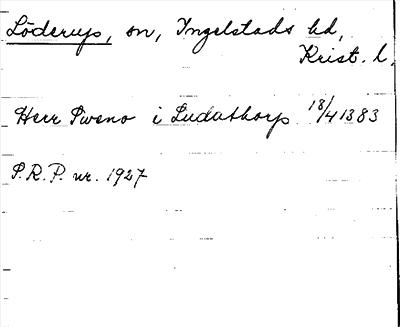 Löderups, sn, Ingelstads hd,
Krist. l.
Herr Sweno i Ludathorp 18/4 1383
S.R.P. nr. 1927